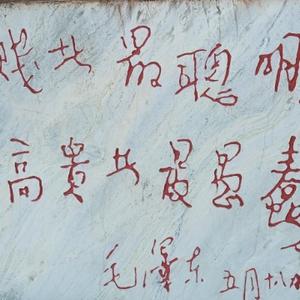 贱者最聪明
高贵者最愚蠢
毛泽东 五月十八